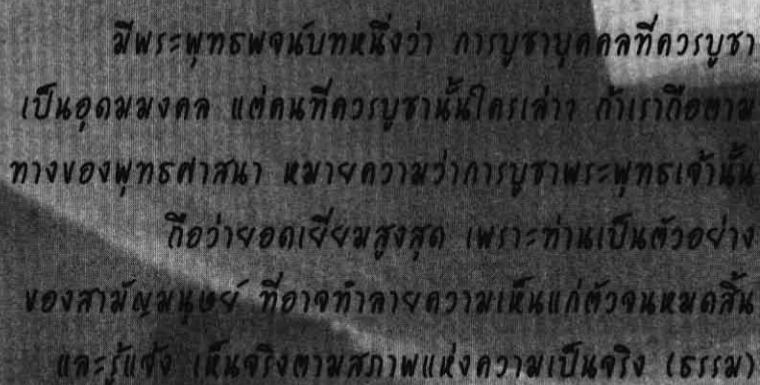 มีพระพุทธพจน์บทหนึ่งว่า การบูชาบุคคลที่ควรบูชา
เป็นอุดมมงคล แต่คนที่ควรบูชานั้นใครเล่า? ถ้าเราถือตาม
ทางของพุทธศาสนา หมายความว่าการบูชาพระพุทธเจ้านั้น
ถือว่ายอดเยี่ยมสูงสุด เพราะท่านเป็นตัวอย่าง
ของสามัญมนุษย์ ที่อาจทำลายความเห็นแก่ตัวจนหมดสิ้น
และรู้แจ้ง เห็นจริงตามสภาพแห่งความเป็นจริง (ธรรม)